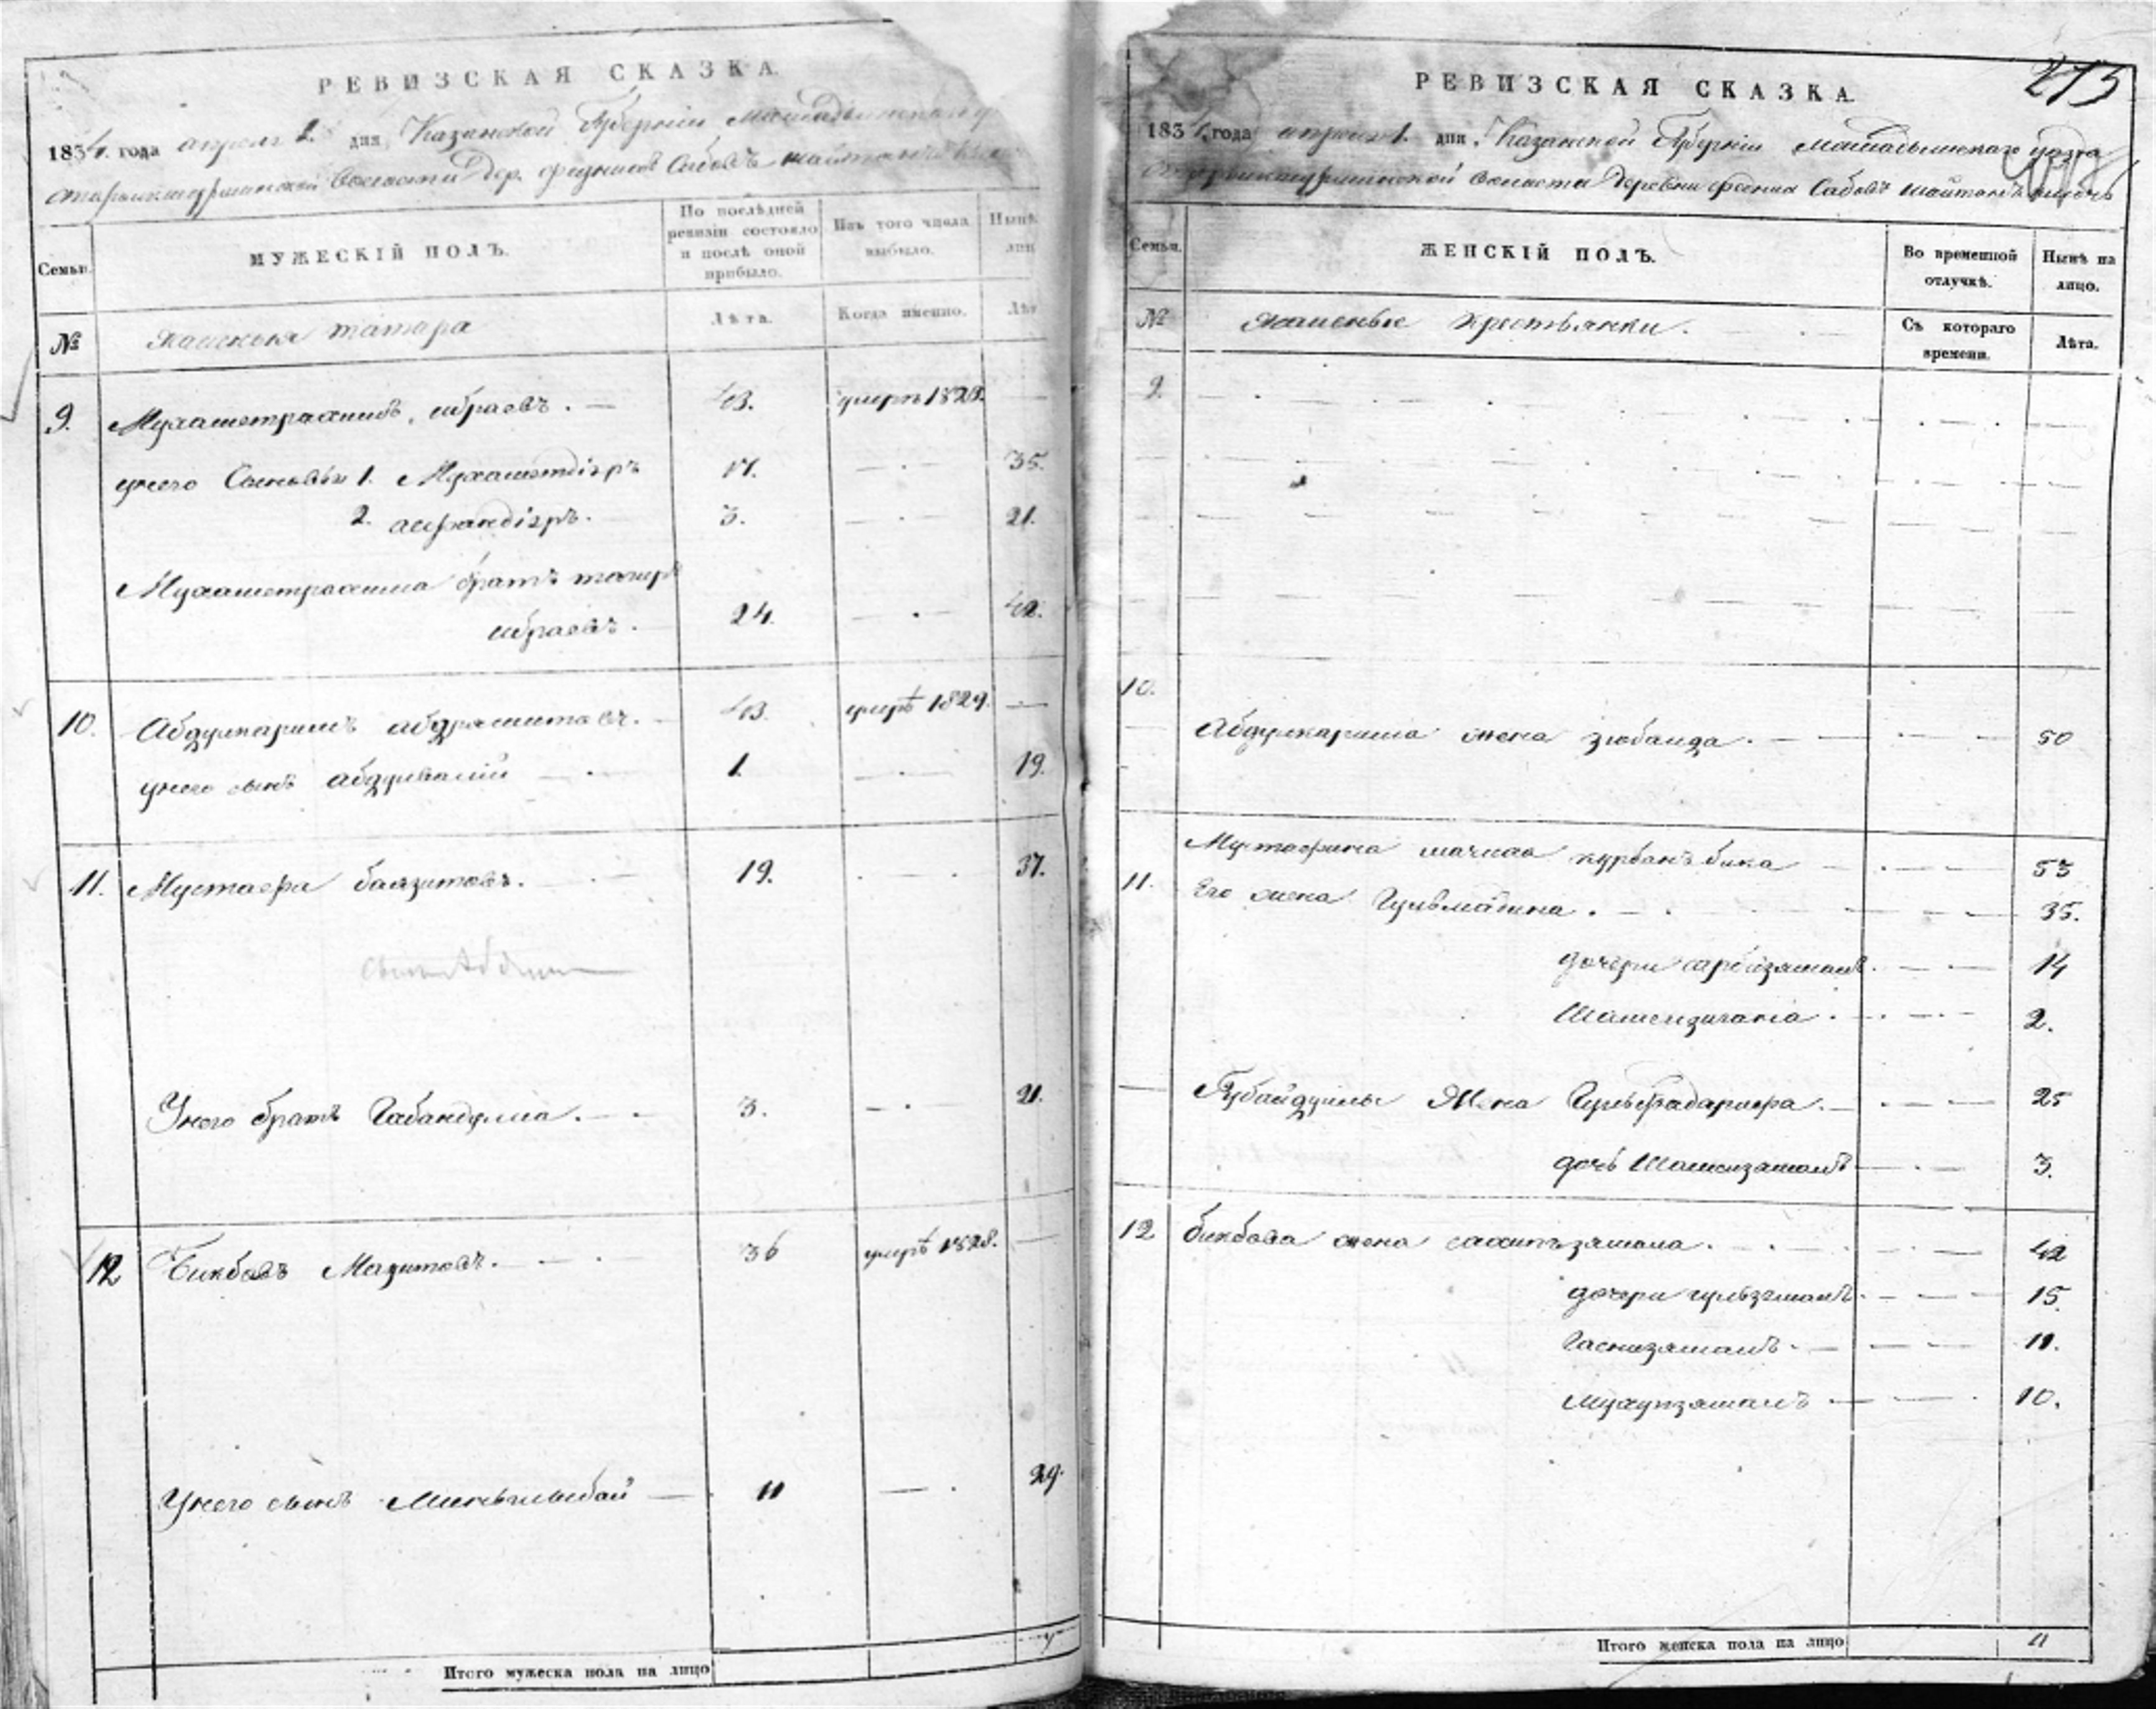 РЕВИЗСКАЯ СКАЗКА
1834 года апреля 1 дня, Казанской Губернии Мамадышскаго
волости дер. Сабовъ
Семьи.
МУЖЕСКІЙ ПОЛЪ.
По послѣдней ревизіи состояло и послѣ оной прибыло.
Изъ того числа выбыло.
Нынѣ лиц
№
татара
Лѣта.
Когда именно.
Лѣт
9. Мухаметрахимъ ибраевъ. 43. умеръ 1829.
у него Сыновья 1. Мухаметдіяръ 17. 35.
2. асфандіяръ. 3. 21.
Мухаметрахима братъ тагиръ
ибраевъ. 24. 42.
10. Абдулкаримъ абдряшитовъ. 43. умеръ 1829.
у него сынъ абдулвалій 1. 19.
11. Мустафа баязитовъ. 19. 37.
У него братъ Габайдулла. 3. 21.
12 Бикбовъ Мязитовъ. 36 умеръ 1828.
У него сынъ Миньгильбай 11 29.
Итого мужеска пола на лицо
РЕВИЗСКАЯ СКАЗКА
275
1834 года апреля 1. дня, Казанской Губерніи Мамадышскаго уезда
волости Деревни Сабовъ
Семьи.
ЖЕНСКІЙ ПОЛЪ.
Во временной отлучкѣ.
Нынѣ на лицо.
№
крестьянки.
Съ котораго времени.
Лѣта.
9.
10.
Абдулкарима жена зюбаида. 50
Мустафина мачиха курбанъ бика 53
11. Его жена Гульматна. 35.
дочери сарбизямалъ. 14
Шамсизигания. 2.
Губайдуллы Жена Гульбадарифа. 25
дочь Шамсизямалъ 3.
12 бикбова жена сахипъзямала. 42
дочери гульзямалъ. 15.
Гаснизямалъ. 11.
Мухупзямалъ 10.
Итого женска пола на лицо 11